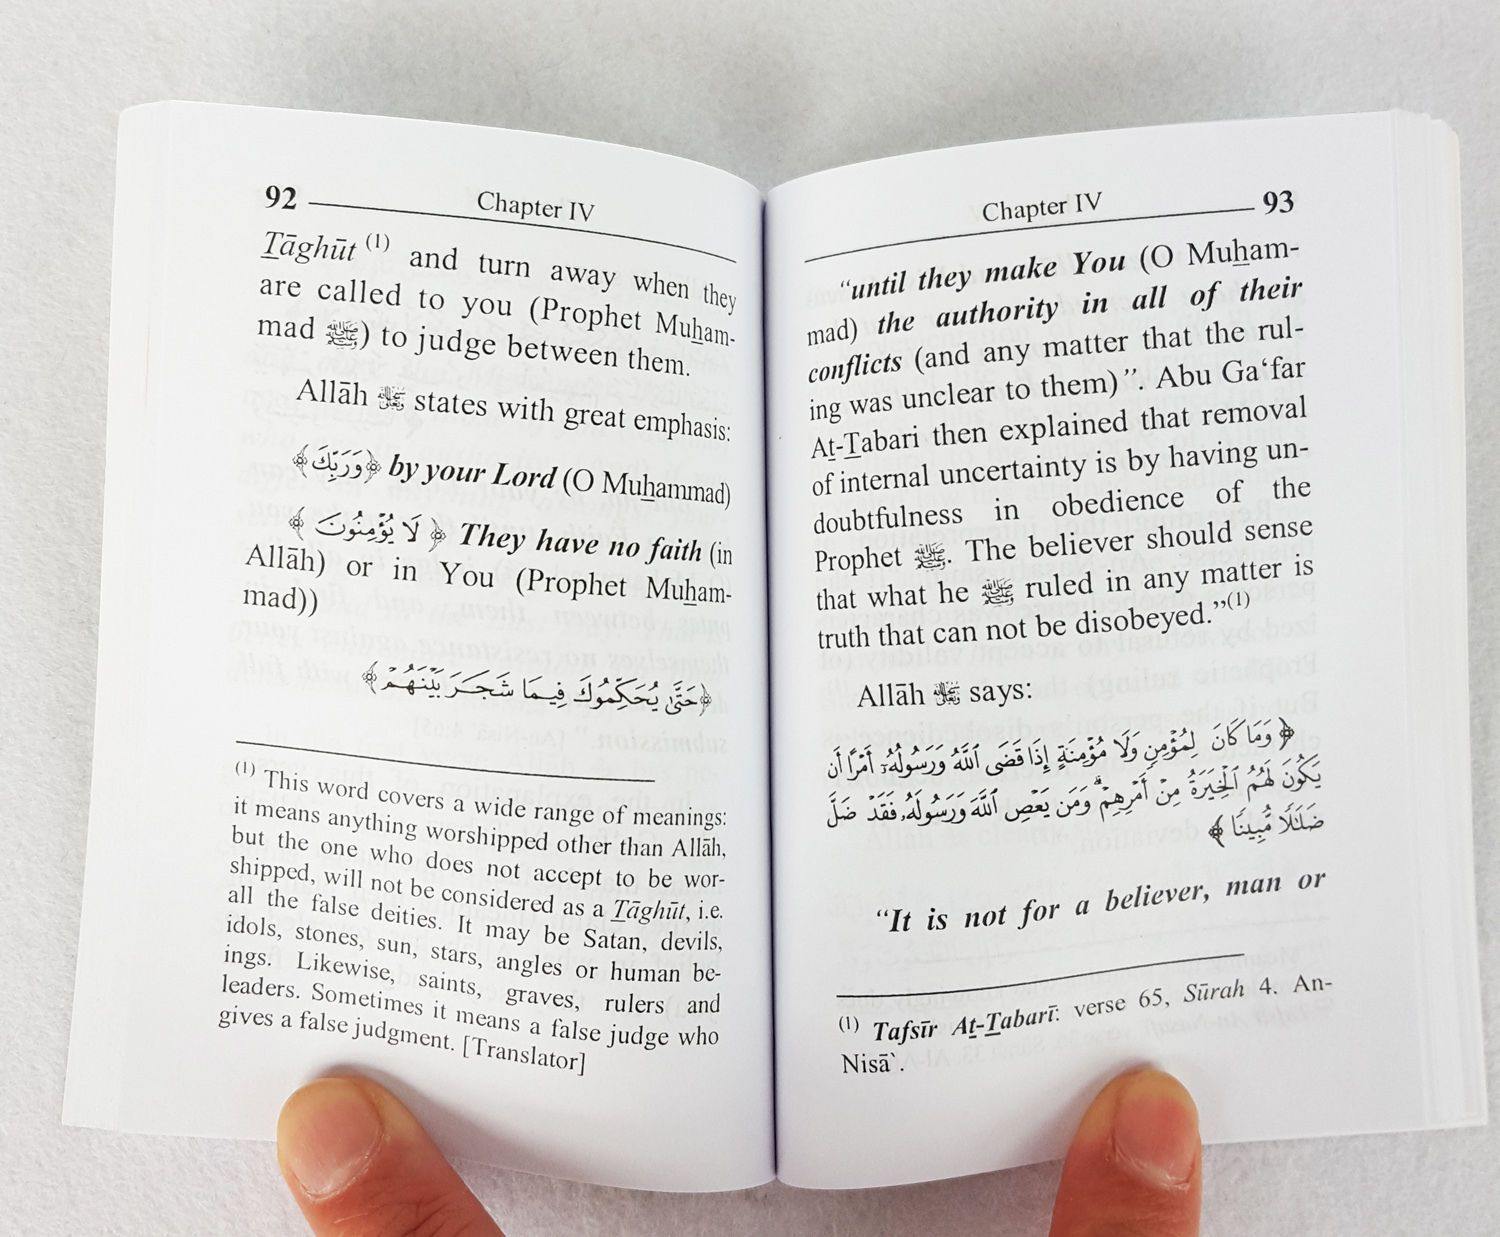 92 Chapter IV
Ṯāghūt (1) and turn away when they
are called to you (Prophet Muẖam-
mad ﷺ) to judge between them.
Allāh states with great emphasis:
﴿وَرَبِّكَ﴾ by your Lord (O Muẖammad)
﴿لَا يُؤْمِنُونَ﴾ They have no faith (in
Allāh) or in You (Prophet Muẖam-
mad))
﴿حَتَّىٰ يُحَكِّمُوكَ فِيمَا شَجَرَ بَيْنَهُمْ﴾
(1) This word covers a wide range of meanings:
it means anything worshipped other than Allāh,
but the one who does not accept to be wor-
shipped, will not be considered as a Ṯāghūt, i.e.
all the false deities. It may be Satan, devils,
idols, stones, sun, stars, angles or human be-
ings. Likewise, saints, graves, rulers and
leaders. Sometimes it means a false judge who
gives a false judgment. [Translator]
Chapter IV 93
“until they make You (O Muẖam-
mad) the authority in all of their
conflicts (and any matter that the rul-
ing was unclear to them)”. Abu Ga‘far
Aṯ-Ṯabari then explained that removal
of internal uncertainty is by having un-
doubtfulness in obedience of the
Prophet ﷺ. The believer should sense
that what he ﷺ ruled in any matter is
truth that can not be disobeyed.”(1)
Allāh says:
﴿وَمَا كَانَ لِمُؤْمِنٍ وَلَا مُؤْمِنَةٍ إِذَا قَضَى ٱللَّهُ وَرَسُولُهُۥٓ أَمْرًا أَن
يَكُونَ لَهُمُ ٱلْخِيَرَةُ مِنْ أَمْرِهِمْ ۗ وَمَن يَعْصِ ٱللَّهَ وَرَسُولَهُۥ فَقَدْ ضَلَّ
ضَلَـٰلًا مُّبِينًا﴾
“It is not for a believer, man or
(1) Tafsīr Aṯ-Ṯabarī: verse 65, Sūrah 4. An-
Nisā`.